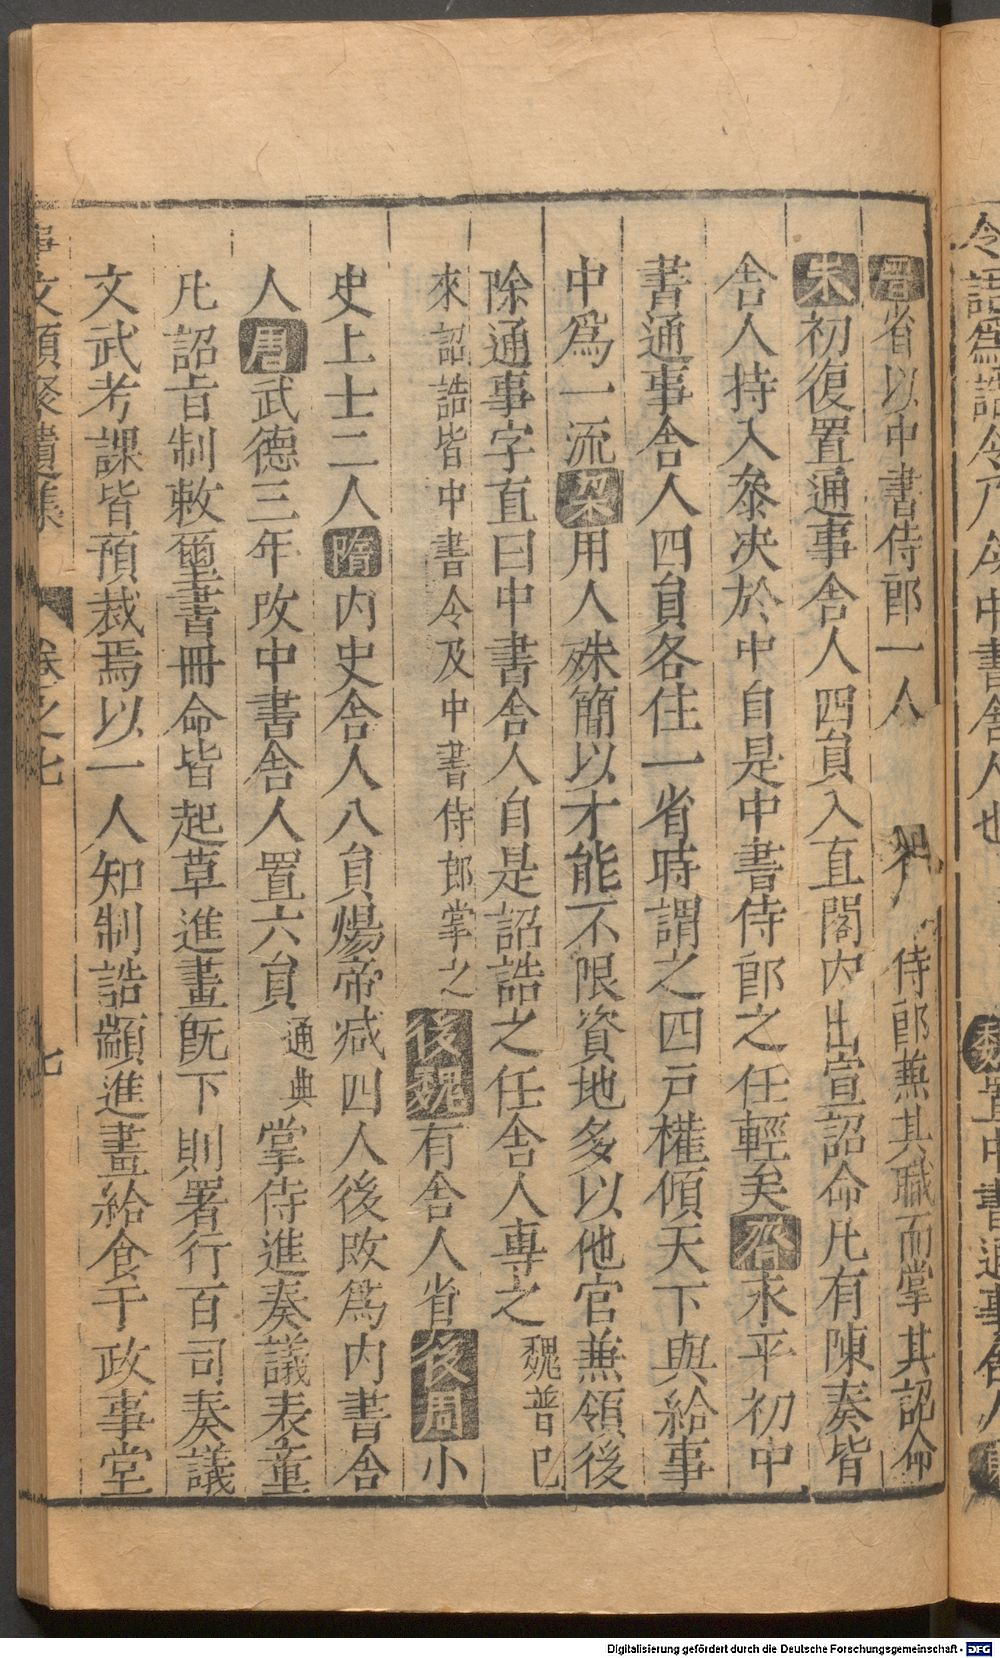 晋省以中書侍郎一人 侍郎兼其職而掌其詔命
宋初復置通事舍人四員入直閣内出宣詔命凡有陳奏皆
舍人持入參决於中自是中書侍郎之任輕矣齊永平初中
書通事舍人四員各住一省時謂之四戸權傾天下與給事
中爲一流梁用人殊簡以才能不限資地多以他官兼領後
除通事字直曰中書舍人自是詔誥之任舍人專之魏晋已
來詔誥皆中書令及中書侍郎掌之後魏有舍人省後周小
史上士二人隋内史舍人八員煬帝减四人後改爲内書舍
人唐武德三年改中書舍人置六員通典掌侍進奏議表章
凡詔旨制敕璽書冊命皆起草進畫既下則署行百司奏議
文武考課皆預裁焉以一人知制誥顓進畫給食于政事堂
事文類聚遺集 卷之七 七
令語爲詔令乃今中書舍人也
魏置中書通事舍人
Digitalisierung gefördert durch die Deutsche Forschungsgemeinschaft - DFG